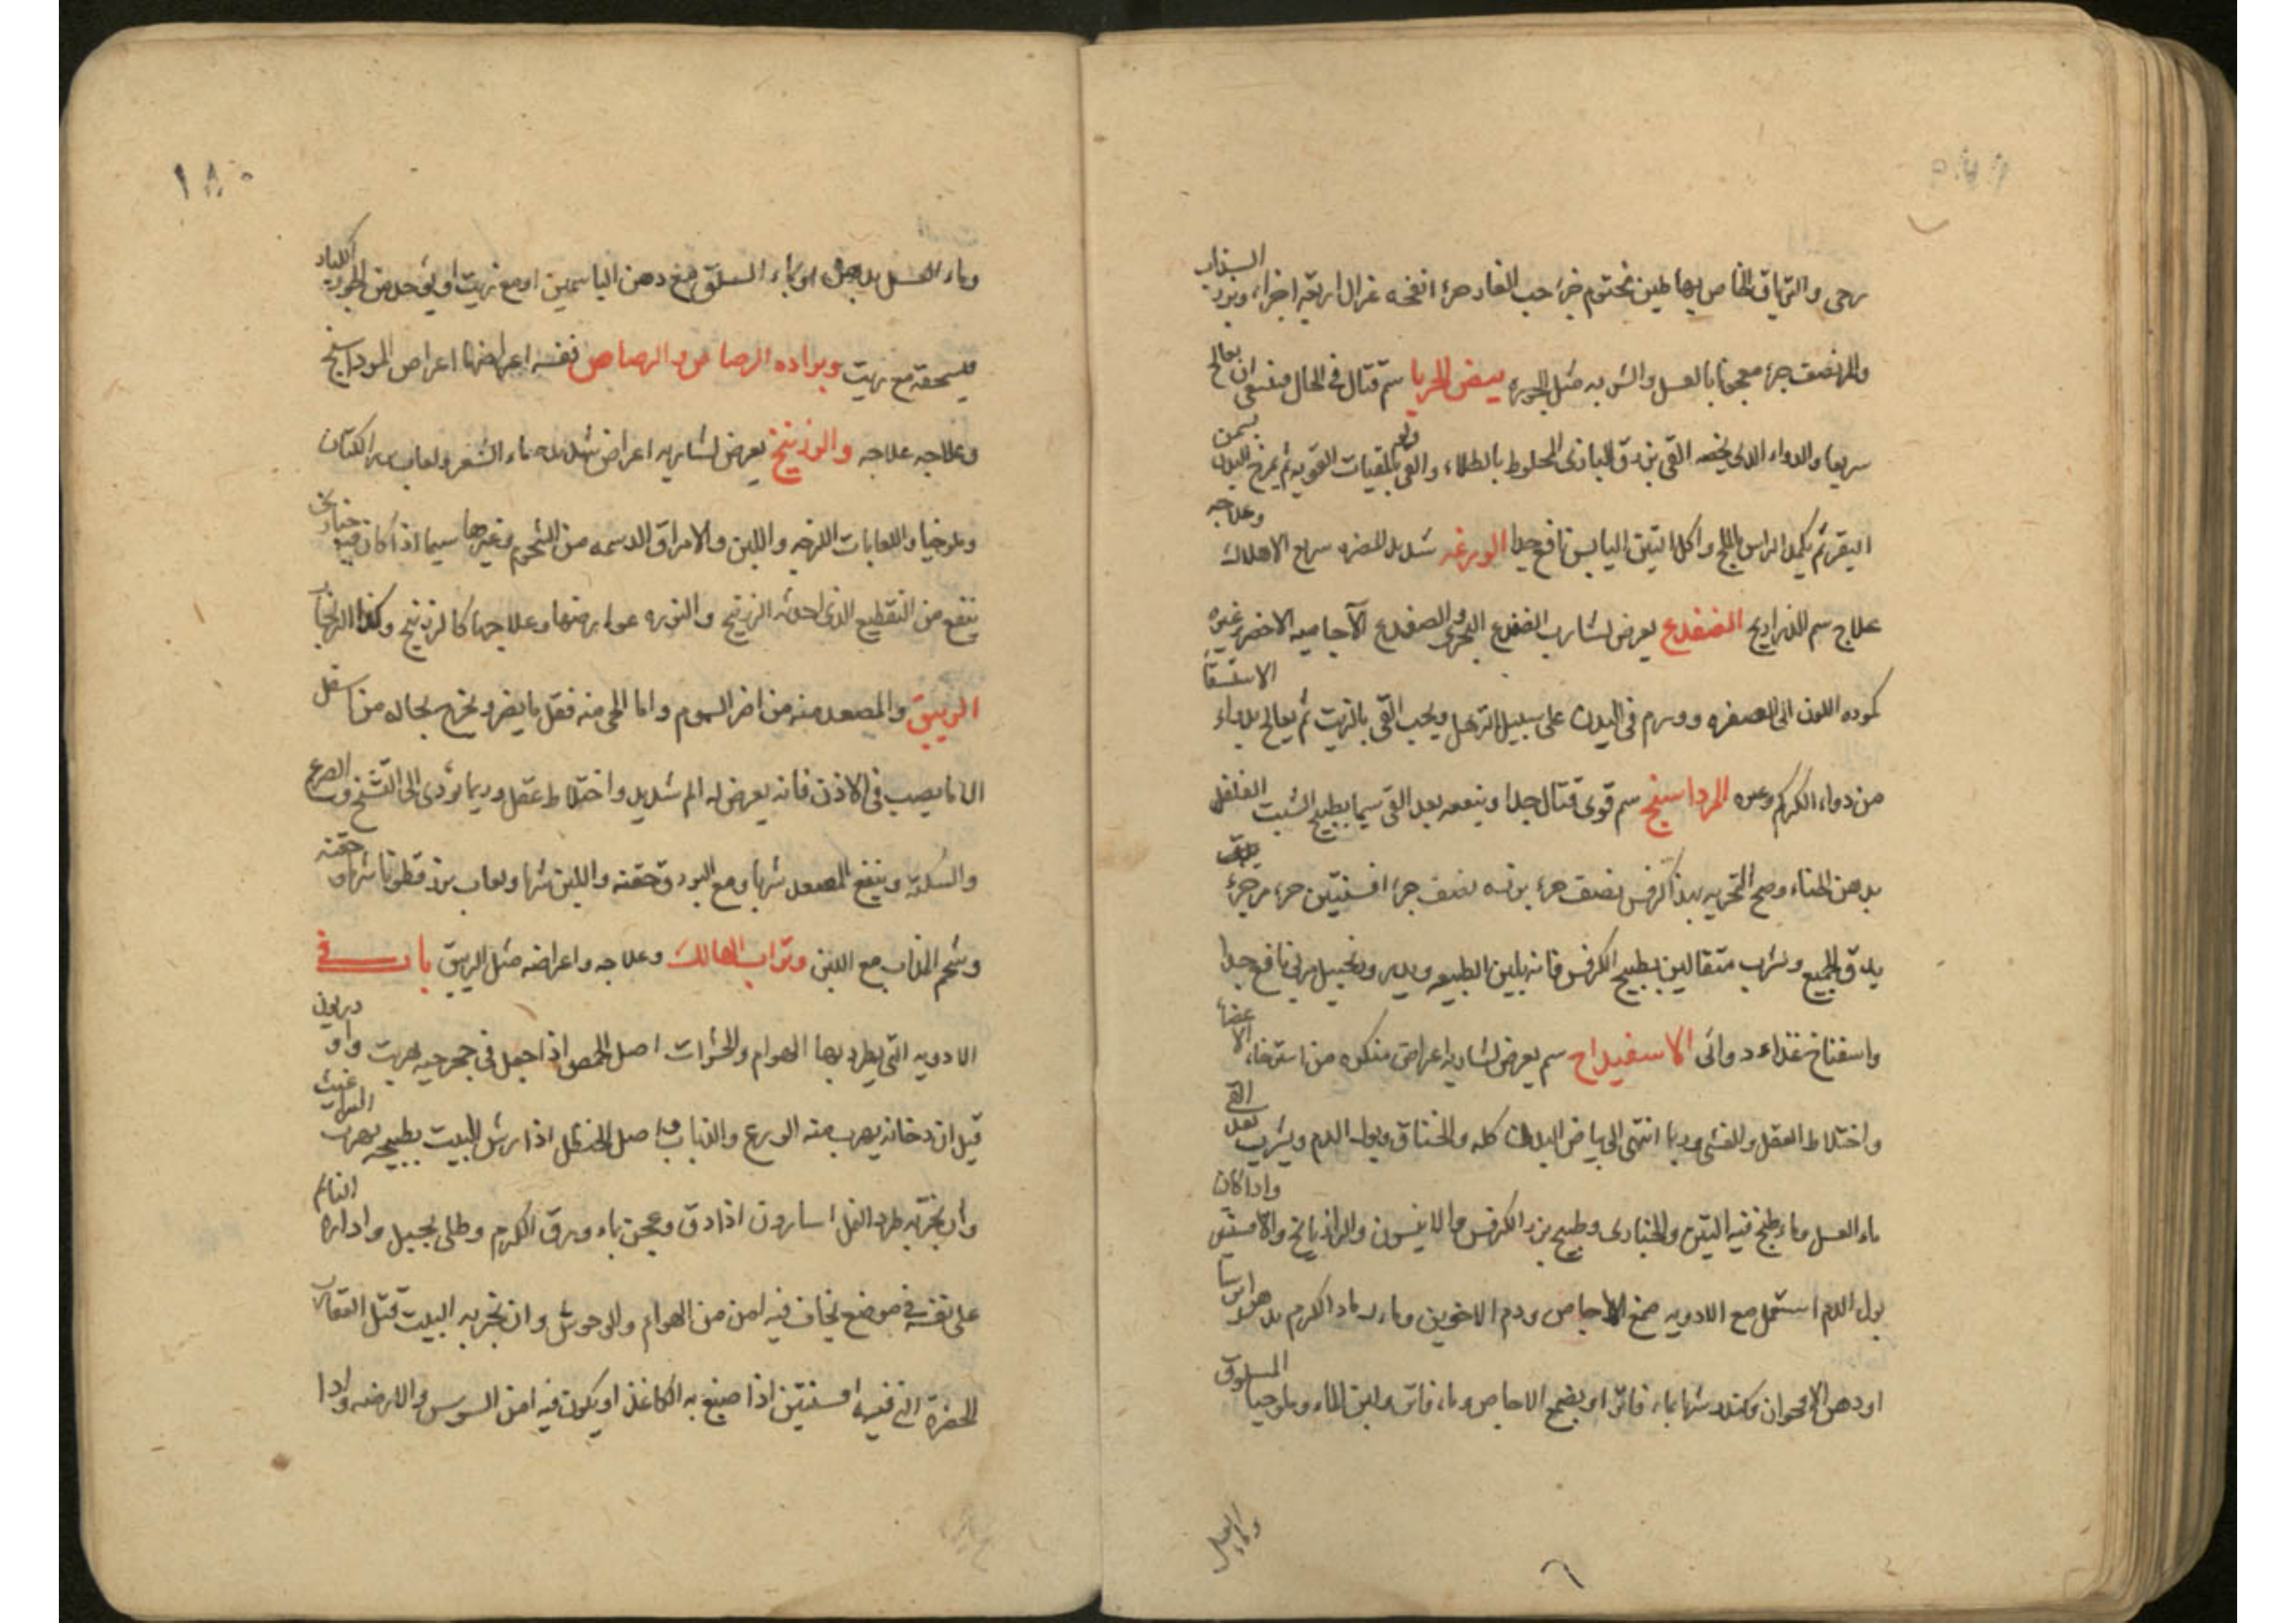 رحى والترياق الخاص بها طين مختوم جزء حب الغار جزء انفخه غزال اربعة اجزاء وبزر السذاب
والمر نصف جزء معجونا بالعسل والشربه مثل الجوزه بيض الحربا سم قتال في الحال فينبغي ان يعالج
سريعا والدواء الذي يخصه القي بزرق البازى المخلوط بالطلاء والقى بالمقيات القويه ثم يمرخ البدن بسمن
البقر ثم يكمد الراس بالملح واكل التين اليابس نافع جدا الوزغه شديد المضره سريع الاهلاك وعلاجه
علاج سم الذراريح الضفدع يعرض لشارب الضفدع البحرى والضفدع الآجاميه الاخضر وغيره
كموده اللون الى الصفره وورم في البدن على سبيل الترهل ويجب القى بالزيت ثم يعالج بدواء الاستسقا
من دواء الكركم وغيره المرداسنج سم قوى قتال جدا وينفعه بعد القى سيما بطبيخ الشبت الفلفل
بدهن الحناء وصح التجربه بزر كرفس نصف جزء نصف جزء افسنتين جزء مر جزء
يدق الجميع ويشرب مثقالين بطبيخ الكرفس فانه يلين الطبيعه ويدر وزنجبيل مربى نافع جدا
واسفناخ غذاء دوائى الاسفيداج سم يعرض لشاربه اعراض منكره من استرخاء الاعضأ
واختلاط العقل والغشى وربما انتهى الى بياض البدن كله والخناق وبول الدم ويشرب بعد القى
ماء العسل وماء طبخ فيه التين والخبازى وطبيخ بزر الكرفس والانيسون والرازيانج والافسنتين واذا كان
بول الدم استعمل مع الادويه صمغ الاجاص ودم الاخوين وماء رماد الكرم بدهن
او دهن الاقحوان وكندر شربا بماء فاترا او بصمغ الاجاص وماء فاتر ولبن الماء وملوخيا المسلوق
وماء العسل
١٨٠
وماء العسل بدهن او بماء السلق مع دهن الياسمين او مع زيت او يوخذ من الحب
فيسحقه مع زيت وبراده الرصاص والرصاص نفسه اعراضها اعراض المرداسنج
وعلاجه علاجه والزرنيخ يعرض لشاربه اعراض شديده ماء الشعير ولعاب بزر الكتان
وملوخيا واللعابات اللزجه واللبن والامراق الدسمه من الشحوم وغيرها سيما اذا كان فيه خبازى
ينفع من التقطيع الذى احدثه الزرنيخ والنوره عوارضها وعلاجها كالزرنيخ وكذا الزنجار
الزيبق والمصعد منه من اضر السموم واما الحى منه فقل ما يضر ويخرج بحاله من اسفل
الا ما يصب في الاذن فانه يعرض له الم شديد واختلاط عقل وربما يؤدى الى التشنج والصرع
والسكته وينفع المصعد شربا ومع البورق حقنه واللبن شربا ولعاب بزر قطونا شربا وحقنه
وشحم المذاب مع اللبن وتراب الهالك وعلاجه واعراضه مثل الزيبق باب في
الادويه التى يطرد بها الهوام والحشرات اصل الحمص اذا جعل في جحر حيه هربت
قيل ان دخانه يهرب منه الوزغ والذباب واصل الحنظل اذا رش البيت بطبيخه يهرب البراغيث
وان بخر به طرد النمل اسارون اذا دق وعجن بماء ورق الكرم وطلى بحبل واداره النايم
على نفسه في موضع يخاف فيه امن من الهوام والوحوش وان بخر به البيت قتل العقارب
الحضرة التى فيه افسنتين اذا صبغ به الكاغذ او يكون فيه امن السوس والارضه واذا